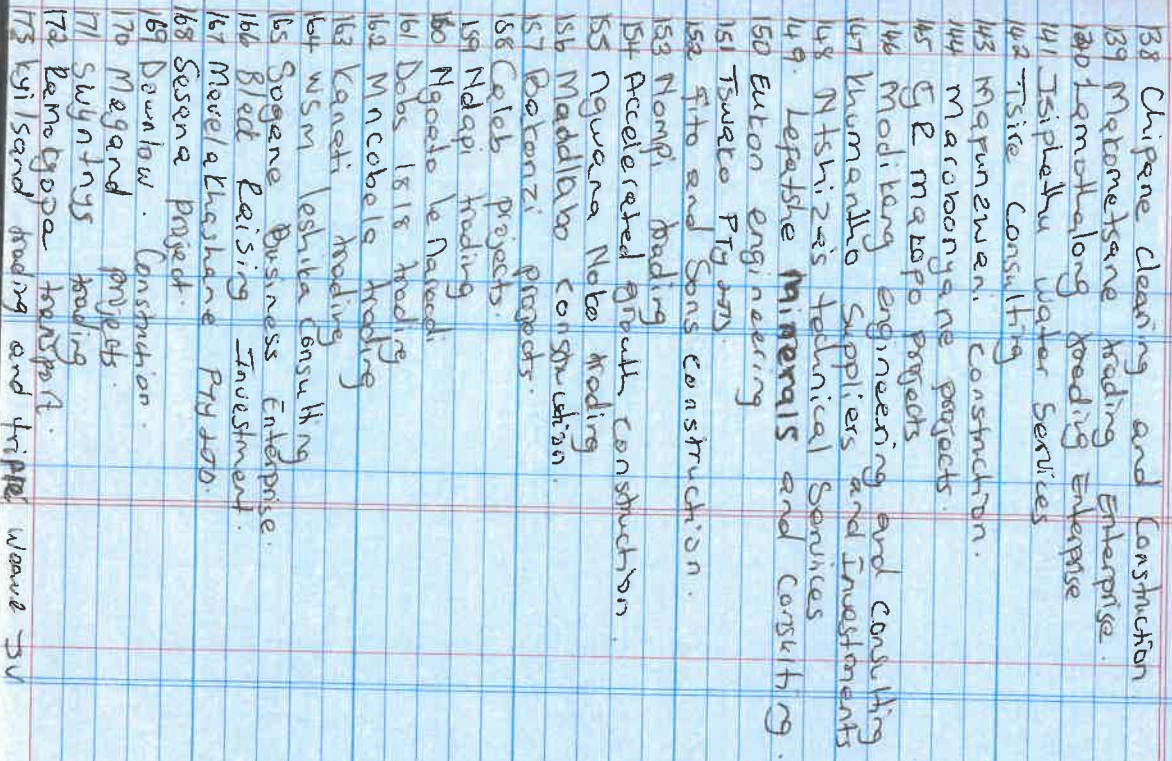 138 Chipane Clearing and Construction
139 Makometsane trading Enterprise.
140 Lamothalong trading Enterprise
141 Isiphethu water Services
142 Tsire Consulting
143 Mapunzwani Construction.
144 Marobonyane projects.
145 GR makopo projects
146 Modikang engineering and Consulting
147 Khumantho Suppliers and Investments
148 Ntshiza's technical Services
149. Lefatshe minerals and Consulting.
150 Euton engineering
151 Tswako PTy LTD
152 Fito and Sons construction.
153 Nompi trading
154 Accelerated growth construction.
155 Ngwana Noko trading
156 Maddlabo construction.
157 Bakonzi projects.
158 Caleb projects.
159 Ndapi trading
160 Ngoato le Naredi
161 Dobs 1818 trading
162 Mncobela trading
163 Kanati trading
164 WSM leshika Consulting
165 Sogane Business Enterprise.
166 Black Raising Investment.
167 Mavela Khashane PTy LTD.
168 Sesana project.
169 Downlow. Construction.
170 Magand projects.
171 Swyntnys trading
172 Ramatgopa transport.
173 Kyilsand trading and tripple weave JV